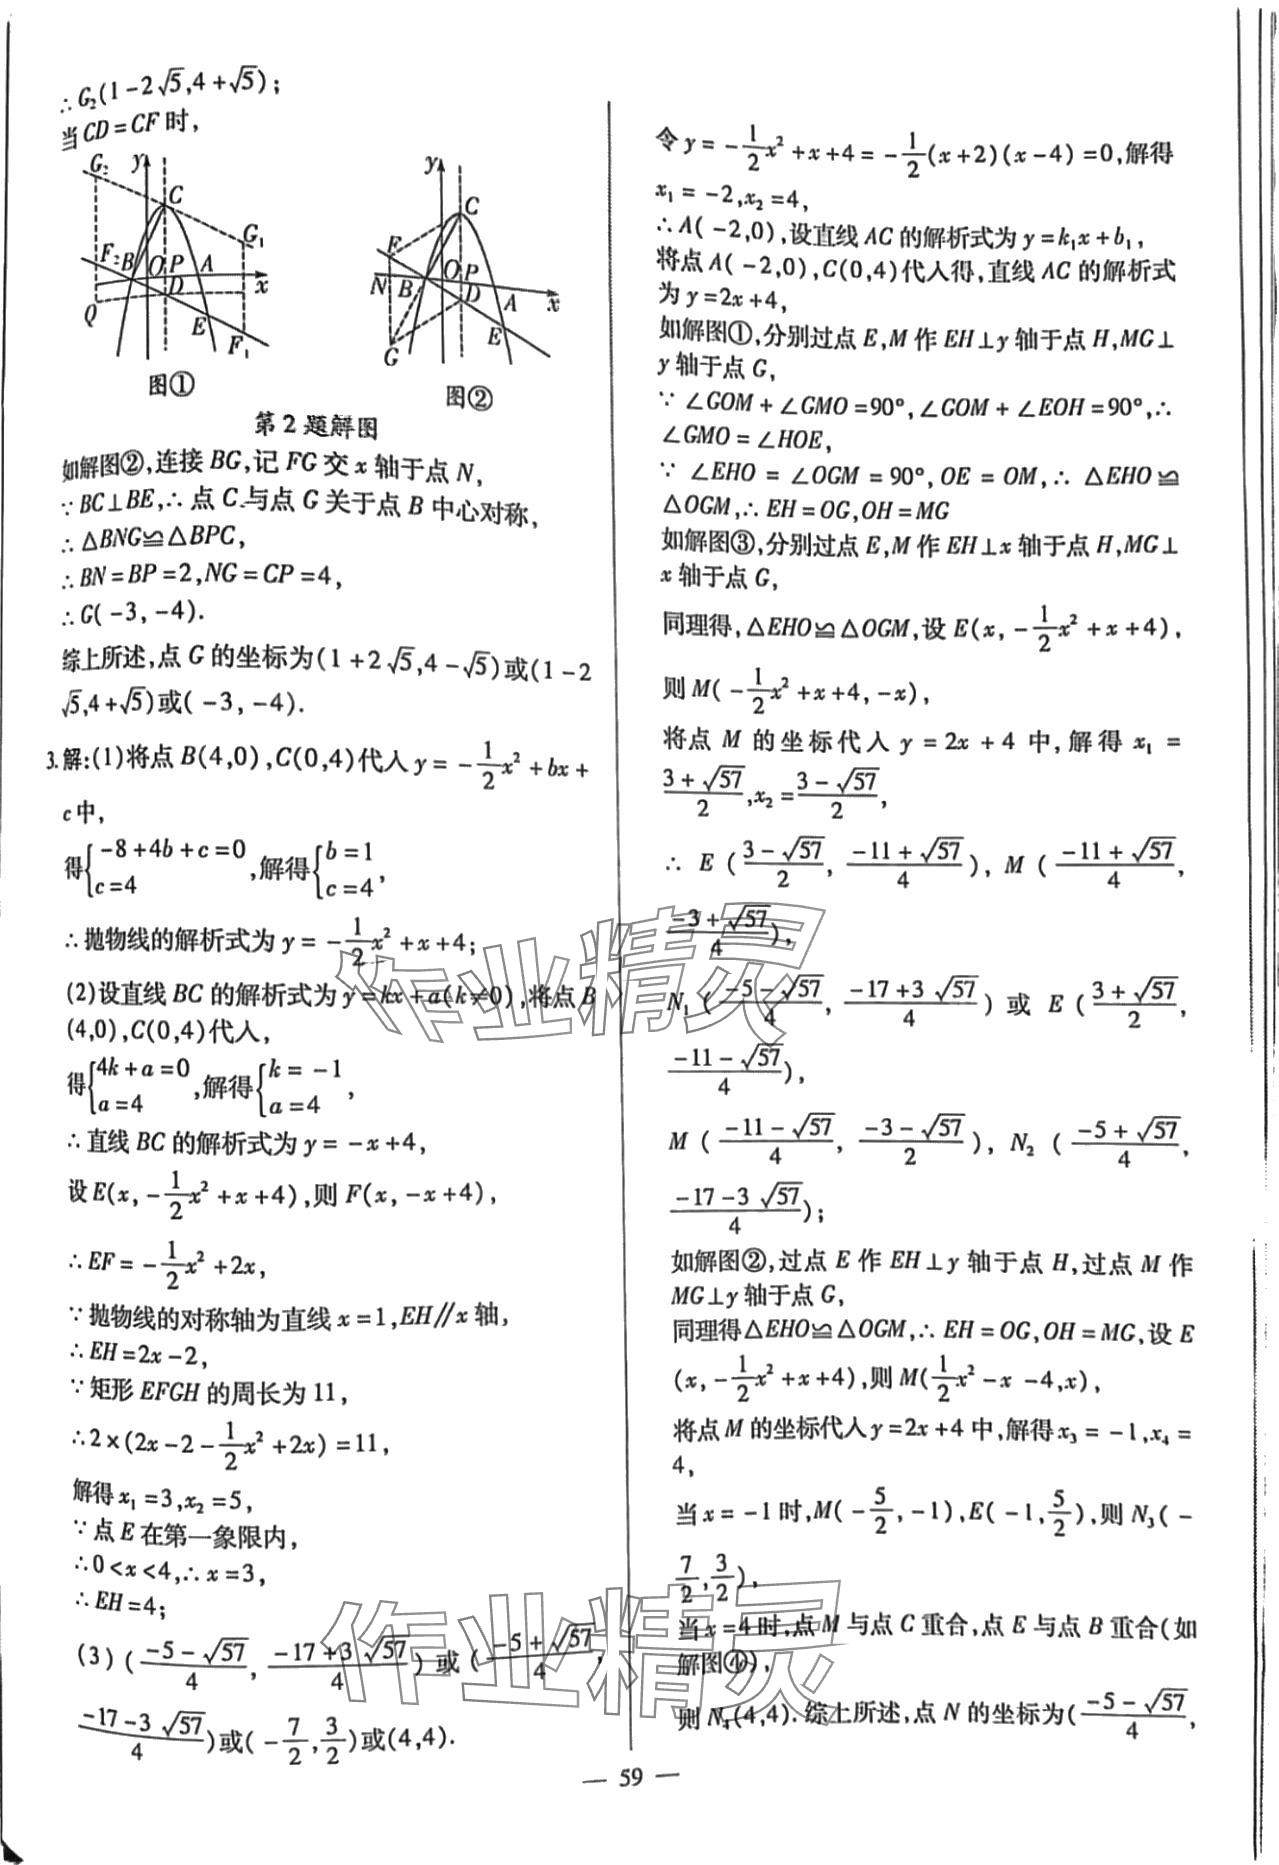 ∴G₂(1-2√5,4+√5);
当CD=CF时,
G₂ y C G₁ F₂ B O P A x Q D E F₁
y C F O P N B D A x E G
图①
图②
第2题解图
如解图②,连接BG,记FG交x轴于点N,
∵BC⊥BE,∴点C与点G关于点B中心对称,
∴△BNG≌△BPC,
∴BN=BP=2,NG=CP=4,
∴G(-3,-4).
综上所述,点G的坐标为(1+2√5,4-√5)或(1-2
√5,4+√5)或(-3,-4).
3.解:(1)将点B(4,0),C(0,4)代入y=-1/2x²+bx+
c中,
得{-8+4b+c=0 c=4,解得{b=1 c=4,
∴抛物线的解析式为y=-1/2x²+x+4;
(2)设直线BC的解析式为y=kx+a(k≠0),将点B
(4,0),C(0,4)代入,
得{4k+a=0 a=4,解得{k=-1 a=4,
∴直线BC的解析式为y=-x+4,
设E(x,-1/2x²+x+4),则F(x,-x+4),
∴EF=-1/2x²+2x,
∵抛物线的对称轴为直线x=1,EH∥x轴,
∴EH=2x-2,
∵矩形EFGH的周长为11,
∴2×(2x-2-1/2x²+2x)=11,
解得x₁=3,x₂=5,
∵点E在第一象限内,
∴0<x<4,∴x=3,
∴EH=4;
(3)((-5-√57)/4,(-17+3√57)/4)或((-5+√57)/4,
(-17-3√57)/4)或(-7/2,3/2)或(4,4).
令y=-1/2x²+x+4=-1/2(x+2)(x-4)=0,解得
x₁=-2,x₂=4,
∴A(-2,0),设直线AC的解析式为y=k₁x+b₁,
将点A(-2,0),C(0,4)代入得,直线AC的解析式
为y=2x+4,
如解图①,分别过点E,M作EH⊥y轴于点H,MG⊥
y轴于点G,
∵∠GOM+∠GMO=90°,∠GOM+∠EOH=90°,∴
∠GMO=∠HOE,
∵∠EHO=∠OGM=90°,OE=OM,∴△EHO≌
△OGM,∴EH=OG,OH=MG
如解图③,分别过点E,M作EH⊥x轴于点H,MG⊥
x轴于点G,
同理得,△EHO≌△OGM,设E(x,-1/2x²+x+4),
则M(-1/2x²+x+4,-x),
将点M的坐标代入y=2x+4中,解得x₁=
(3+√57)/2,x₂=(3-√57)/2,
∴E((3-√57)/2,(-11+√57)/4),M((-11+√57)/4,
(-3+√57)/4),
N₁((-5-√57)/4,(-17+3√57)/4)或E((3+√57)/2,
(-11-√57)/4),
M((-11-√57)/4,(-3-√57)/2),N₂((-5+√57)/4,
(-17-3√57)/4);
如解图②,过点E作EH⊥y轴于点H,过点M作
MG⊥y轴于点G,
同理得△EHO≌△OGM,∴EH=OG,OH=MG,设E
(x,-1/2x²+x+4),则M(1/2x²-x-4,x),
将点M的坐标代入y=2x+4中,解得x₃=-1,x₄=
4,
当x=-1时,M(-5/2,-1),E(-1,5/2),则N₃(-
7/2,3/2),
当x=4时,点M与点C重合,点E与点B重合(如
解图④),
则N₄(4,4).综上所述,点N的坐标为((-5-√57)/4,
作业精灵
作业精灵
— 59 —